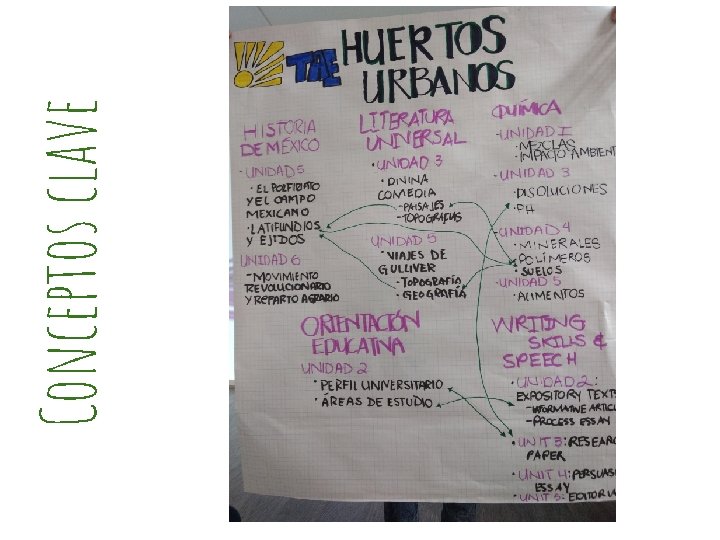 CONCEPTOS CLAVE
TAE HUERTOS
URBANOS
HISTORIA
DE MÉXICO
- UNIDAD 5
· EL PORFIRIATO
Y EL CAMPO
MEXICANO
· LATIFUNDIOS
Y EJIDOS
UNIDAD 6
- MOVIMIENTO
REVOLUCIONARIO
Y REPARTO AGRARIO
LITERATURA
UNIVERSAL
· UNIDAD 3
· DIVINA
COMEDIA
- PAISAJES
- TOPOGRAFIAS
UNIDAD 5
· VIAJES DE
GULLIVER
· TOPOGRAFÍA
· GEOGRAFÍA
QUÍMICA
- UNIDAD I
· MEZCLAS
· IMPACTO AMBIENT
- UNIDAD 3
· DISOLUCIONES
· PH
- UNIDAD 4
· MINERALES
· POLÍMEROS
· SUELOS
- UNIDAD 5
· ALIMENTOS
ORIENTACIÓN
EDUCATIVA
UNIDAD 2
· PERFIL UNIVERSITARIO
· ÁREAS DE ESTUDIO
WRITING
SKILLS &
SPEECH
· UNIDAD 2:
EXPOSITORY TEXTS
- INFORMATIVE ARTICL
- PROCESS ESSAY
· UNIT 3: RESEARC
PAPER
· UNIT 4: PERSUAS
ESSAY
· UNIT 5: EDITORIA